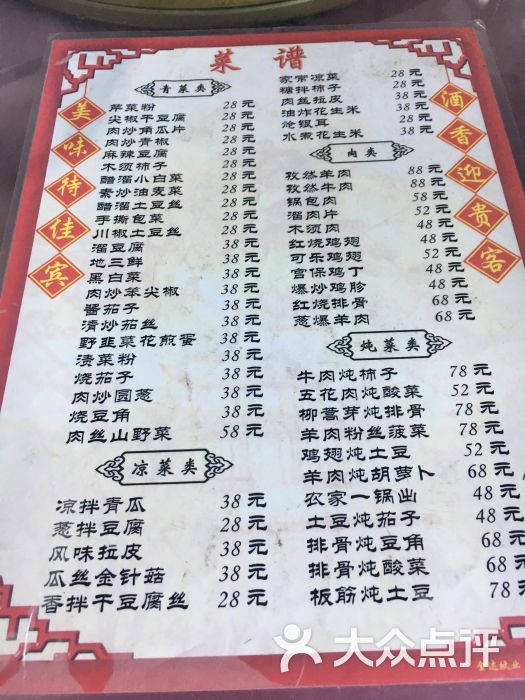 菜谱
美味待佳宾
酒香迎贵客
青菜类
芹菜粉 28元
尖椒干豆腐 28元
肉炒角瓜片 28元
肉炒青椒 28元
麻辣豆腐 28元
木须柿子 28元
醋溜小白菜 28元
素炒油麦菜 28元
醋溜土豆丝 28元
手撕包菜 28元
川椒土豆丝 28元
溜豆腐 38元
地三鲜 38元
黑白菜 38元
肉炒笨尖椒 38元
酱茄子 38元
清炒茄丝 38元
野韭菜花煎蛋 38元
渍菜粉 38元
烧茄子 38元
肉炒圆葱 38元
烧豆角 38元
肉丝山野菜 58元
凉菜类
凉拌青瓜 38元
葱拌豆腐 28元
风味拉皮 38元
瓜丝金针菇 38元
香拌干豆腐丝 28元
家常凉菜 28元
糖拌柿子 28元
肉丝拉皮 38元
油炸花生米 28元
沧银耳 28元
水煮花生米 38元
肉类
孜然羊肉 88元
孜然牛肉 88元
锅包肉 58元
溜肉片 52元
木须肉 48元
红烧鸡翅 48元
可乐鸡翅 52元
宫保鸡丁 48元
爆炒鸡胗 48元
红烧排骨 68元
葱爆羊肉 68元
炖菜类
牛肉炖柿子 78元
五花肉炖酸菜 52元
柳蒿芽炖排骨 78元
羊肉粉丝菠菜 78元
鸡翅炖土豆 52元
羊肉炖胡萝卜 68元
农家一锅出 48元
土豆炖茄子 48元
排骨炖豆角 68元
排骨炖酸菜 68元
板筋炖土豆 78元
大众点评